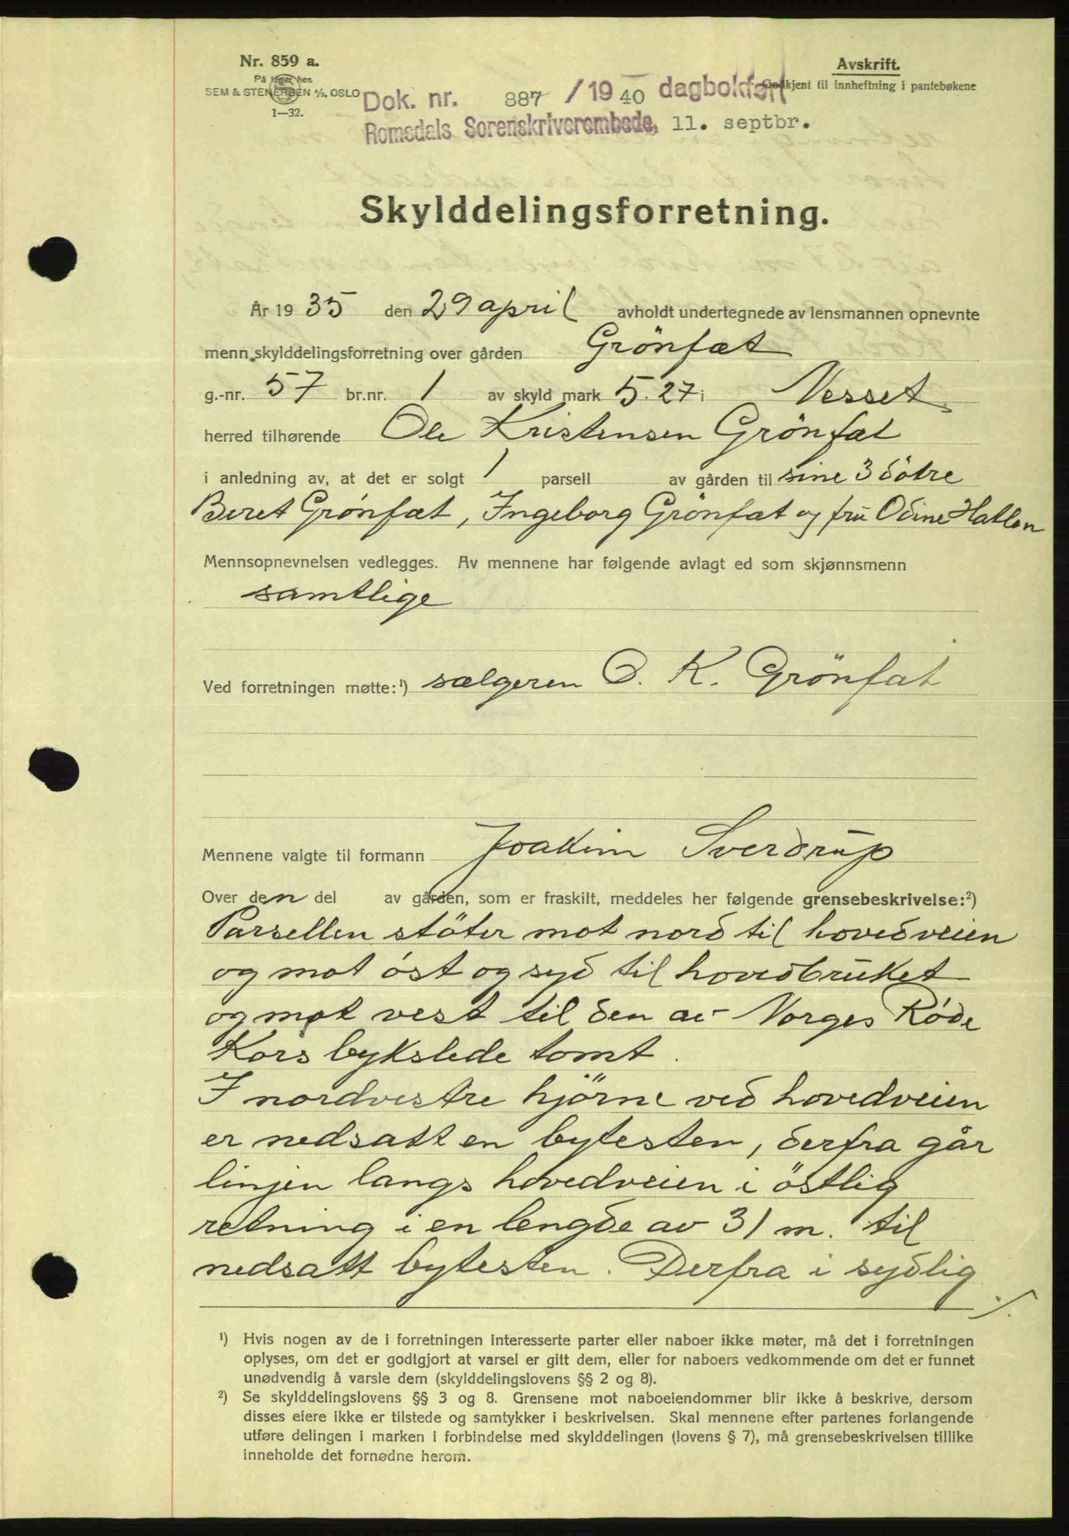 Nr. 859 a.
På lager hos
SEM & STENERSEN A/S, OSLO
1—32.
Avskrift.
Godkjent til innheftning i pantebøkene
Dok. nr. 887 /1940 dagbokført
Romsdals Sorenskriverembede, 11. septbr.
Skylddelingsforretning.
År 1935 den 29 april avholdt undertegnede av lensmannen opnevnte
menn skylddelingsforretning over gården Grönfæt
g.-nr. 57 br.nr. 1 av skyld mark 5.27 i Nesset
herred tilhørende Ole Kristensen Grönfæt
i anledning av, at det er solgt 1 parsell av gården til sine 3 dötre
Beret Grönfæt, Ingeborg Grönfæt og fru Odine Hatlen
Mennsopnevnelsen vedlegges. Av mennene har følgende avlagt ed som skjønnsmenn
samtlige
Ved forretningen møtte:¹) sælgeren O. K. Grönfæt
Mennene valgte til formann Joakim Sverdrup
Over den del av gården, som er fraskilt, meddeles her følgende grensebeskrivelse:²)
Parsellen stöter mot nord til hovedveien
og mot öst og syd til hovedbruket
og mot vest til den av Norges Røde
Kors bykslede tomt.
I nordvestre hjörne ved hovedveien
er nedsatt en bytesten, derfra går
linjen langs hovedveien i östlig
retning i en lengde av 31 m. til
nedsatt bytesten. Derfra i sydlig
./.
¹) Hvis nogen av de i forretningen interesserte parter eller naboer ikke møter, må det i forretningen
oplyses, om det er godtgjort at varsel er gitt dem, eller for naboers vedkommende om det er funnet
unødvendig å varsle dem (skylddelingslovens §§ 2 og 8).
²) Se skylddelingslovens §§ 3 og 8. Grensene mot naboeiendommer blir ikke å beskrive, dersom
disses eiere ikke er tilstede og samtykker i beskrivelsen. Skal mennene efter partenes forlangende
utføre delingen i marken i forbindelse med skylddelingen (lovens § 7), må grensebeskrivelsen tillike
inneholde det fornødne herom.